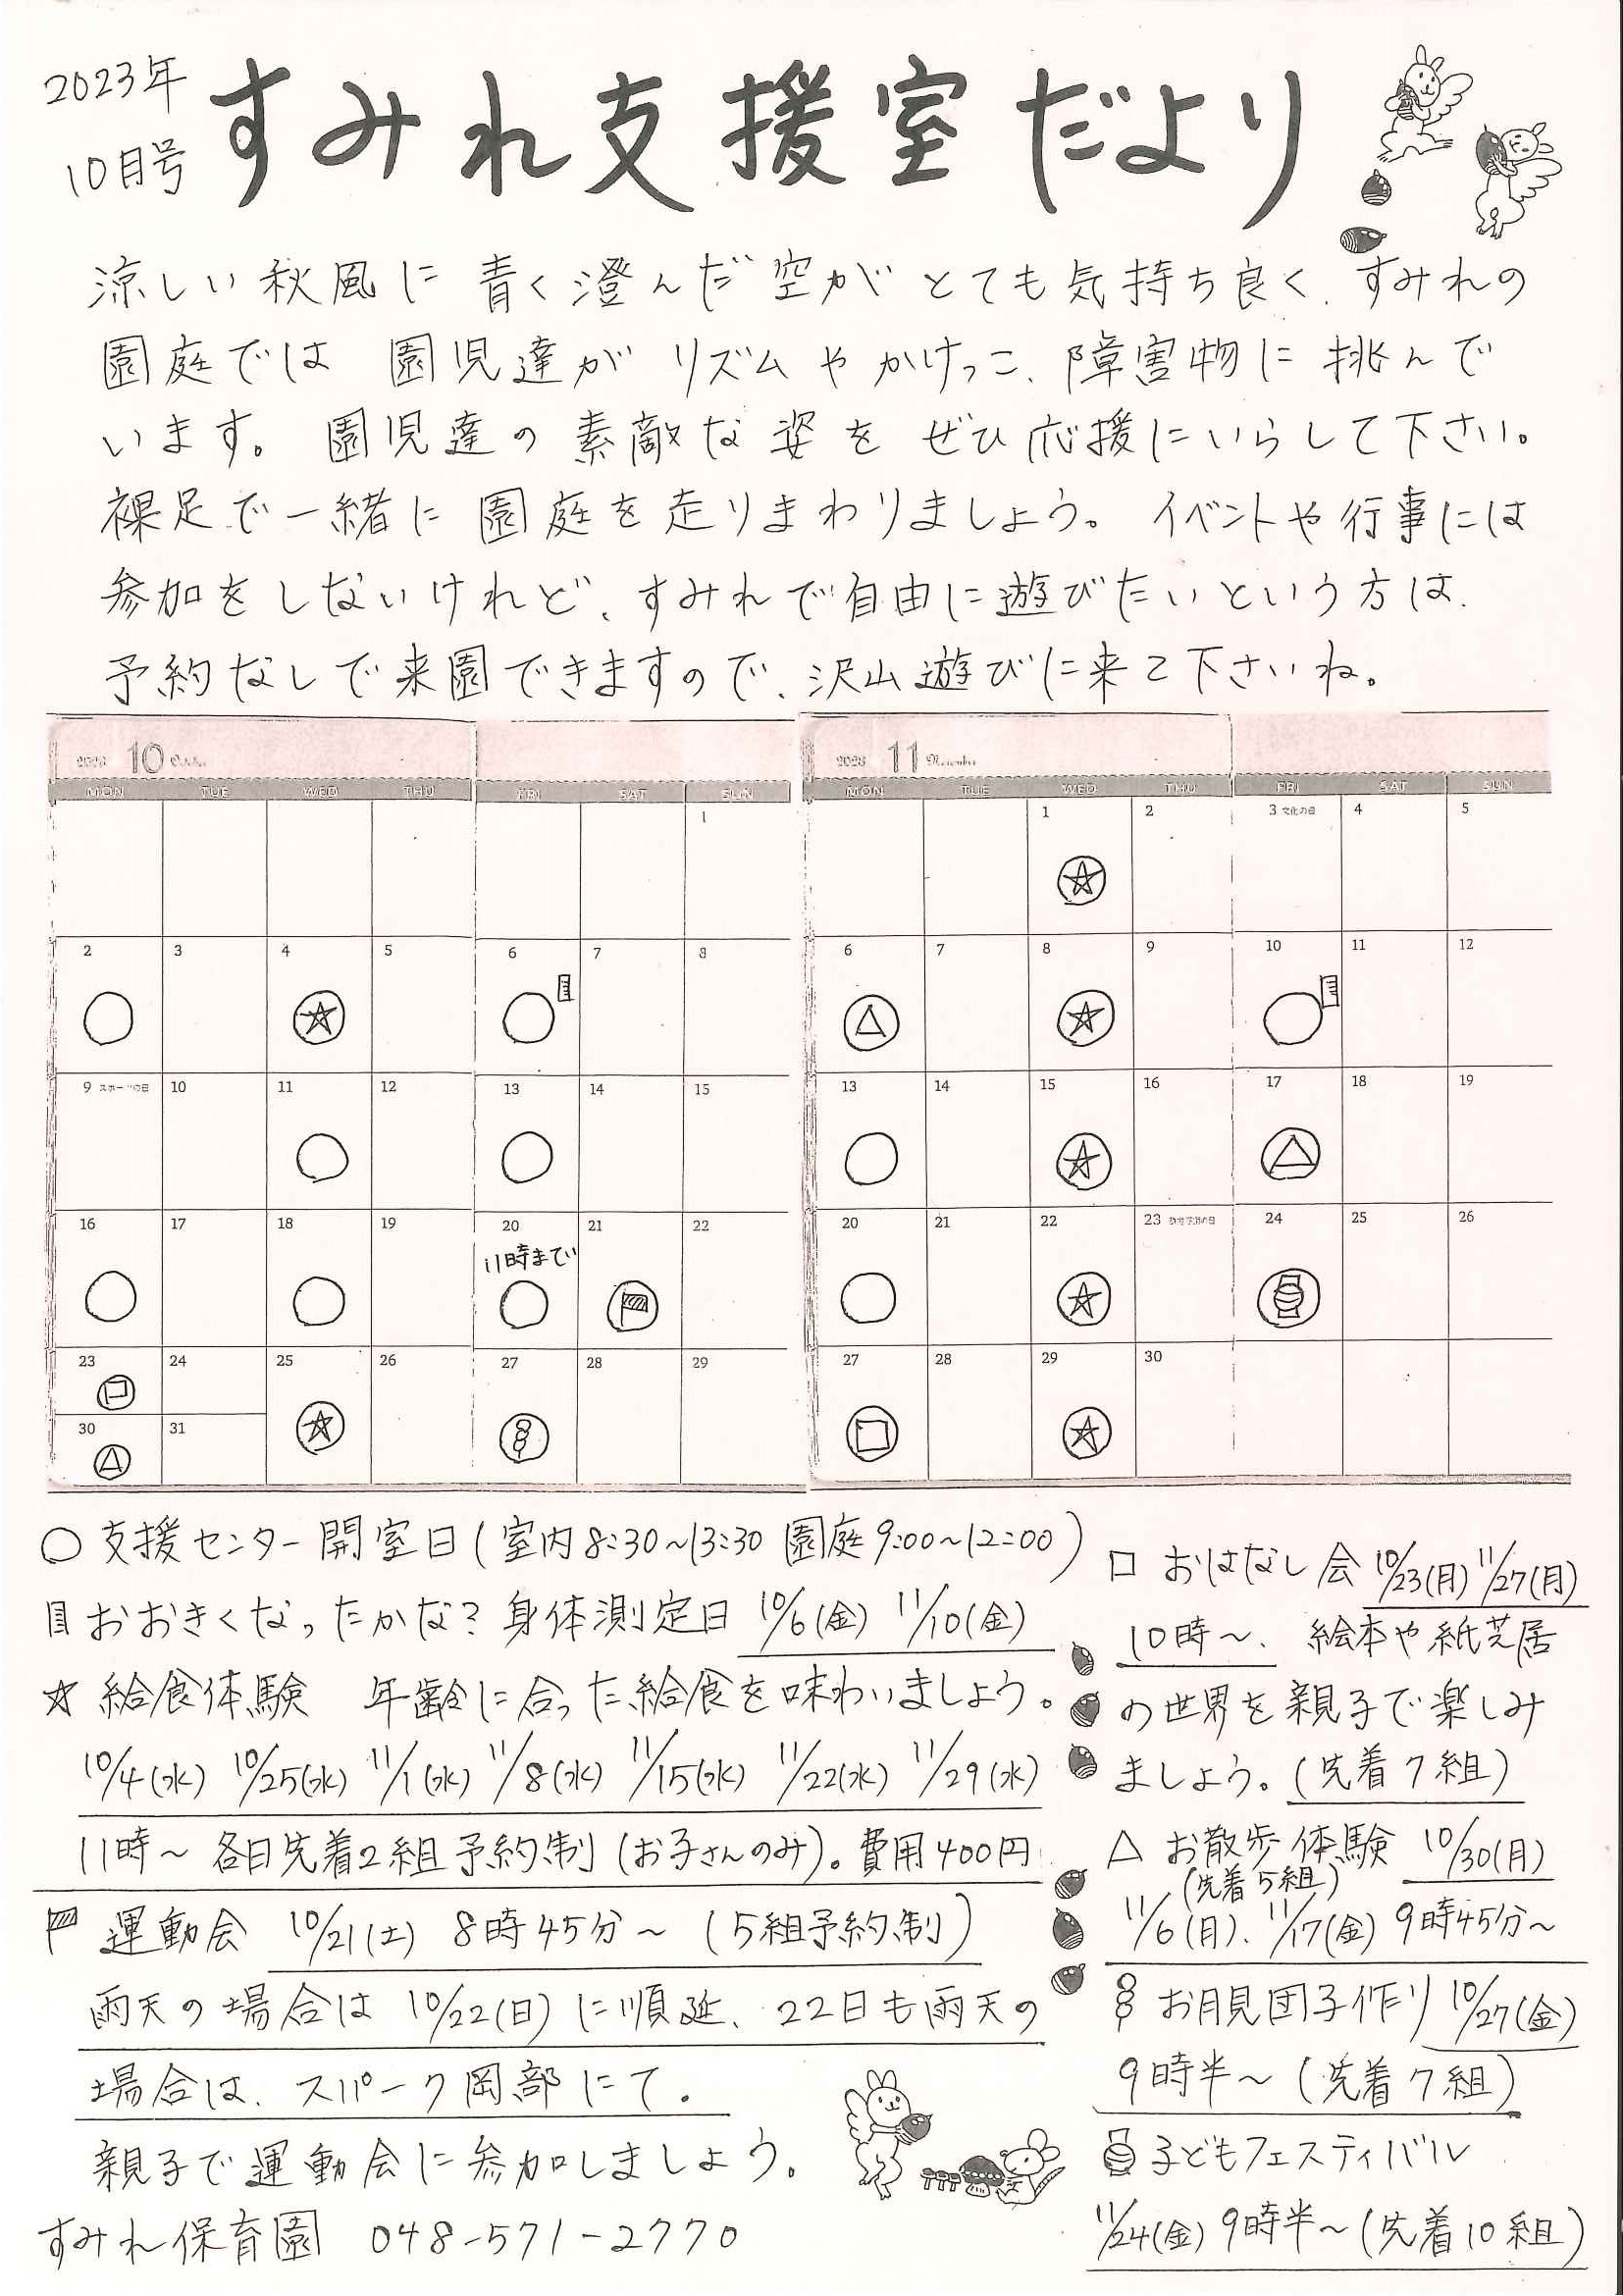 2023年
10月号
すみれ支援室だより
涼しい秋風に青く澄んだ空がとても気持ち良く、すみれの
園庭では 園児達がリズムやかけっこ、障害物に挑んで
います。園児達の素敵な姿をぜひ応援にいらして下さい。
裸足で一緒に園庭を走りまわりましょう。イベントや行事には
参加をしないけれど、すみれで自由に遊びたいという方は、
予約なしで来園できますので、沢山遊びに来て下さいね。
2023 10 October
MON TUE WED THU FRI SAT SUN
1
2 3 4 5 6 7 8
9 スポーツの日 10 11 12 13 14 15
16 17 18 19 20 21 22
11時まで
23 24 25 26 27 28 29
30 31
2023 11 November
MON TUE WED THU FRI SAT SUN
1 2 3 文化の日 4 5
6 7 8 9 10 11 12
13 14 15 16 17 18 19
20 21 22 23 勤労感謝の日 24 25 26
27 28 29 30
○ 支援センター開室日(室内8:30~13:30 園庭9:00~12:00)
おおきくなったかな?身体測定日 10/6(金) 11/10(金)
☆ 給食体験 年齢に合った給食を味わいましょう。
10/4(水) 10/25(水) 11/1(水) 11/8(水) 11/15(水) 11/22(水) 11/29(水)
11時~ 各日先着2組予約制(お子さんのみ)。費用400円
運動会 10/21(土) 8時45分~(5組予約制)
雨天の場合は 10/22(日)に順延、22日も雨天の
場合は、スパーク岡部にて。
親子で運動会に参加しましょう。
すみれ保育園 048-571-2770
□ おはなし会 10/23(月) 11/27(月)
10時~、絵本や紙芝居
の世界を親子で楽しみ
ましょう。(先着7組)
△ お散歩体験 10/30(月)
(先着5組)
11/6(月)、11/17(金) 9時45分~
お月見団子作り 10/27(金)
9時半~(先着7組)
子どもフェスティバル
11/24(金) 9時半~(先着10組)